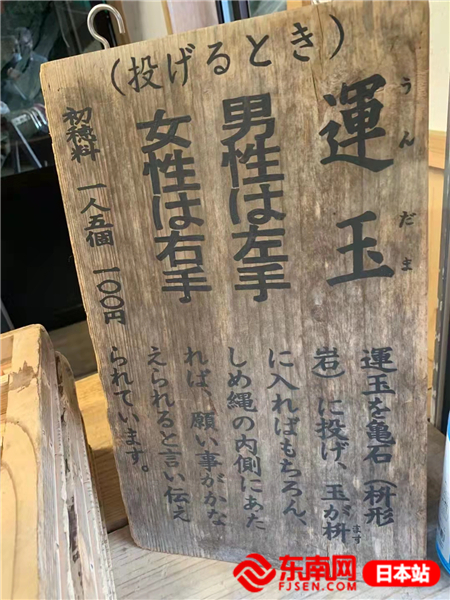 (投げるとき)
運玉
うんだま
男性は左手
女性は右手
初穂料 一人五個 一〇〇円
運玉を亀石(枡形
岩)に投げ、玉が枡
ます
に入ればもちろん、
しめ縄の内側にあた
れば、願い事がかな
えられると言い伝え
られています。
东南网
FJSEN.COM
日本站